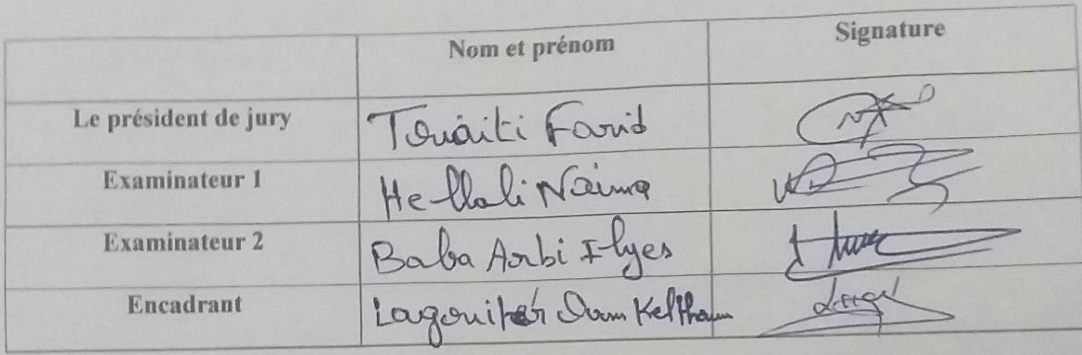 Nom et prénom Signature
Le président de jury Touaiti Farid
Examinateur 1 Hellali Naima
Examinateur 2 Baba Arbi Ilyes
Encadrant Oum Kelthoum